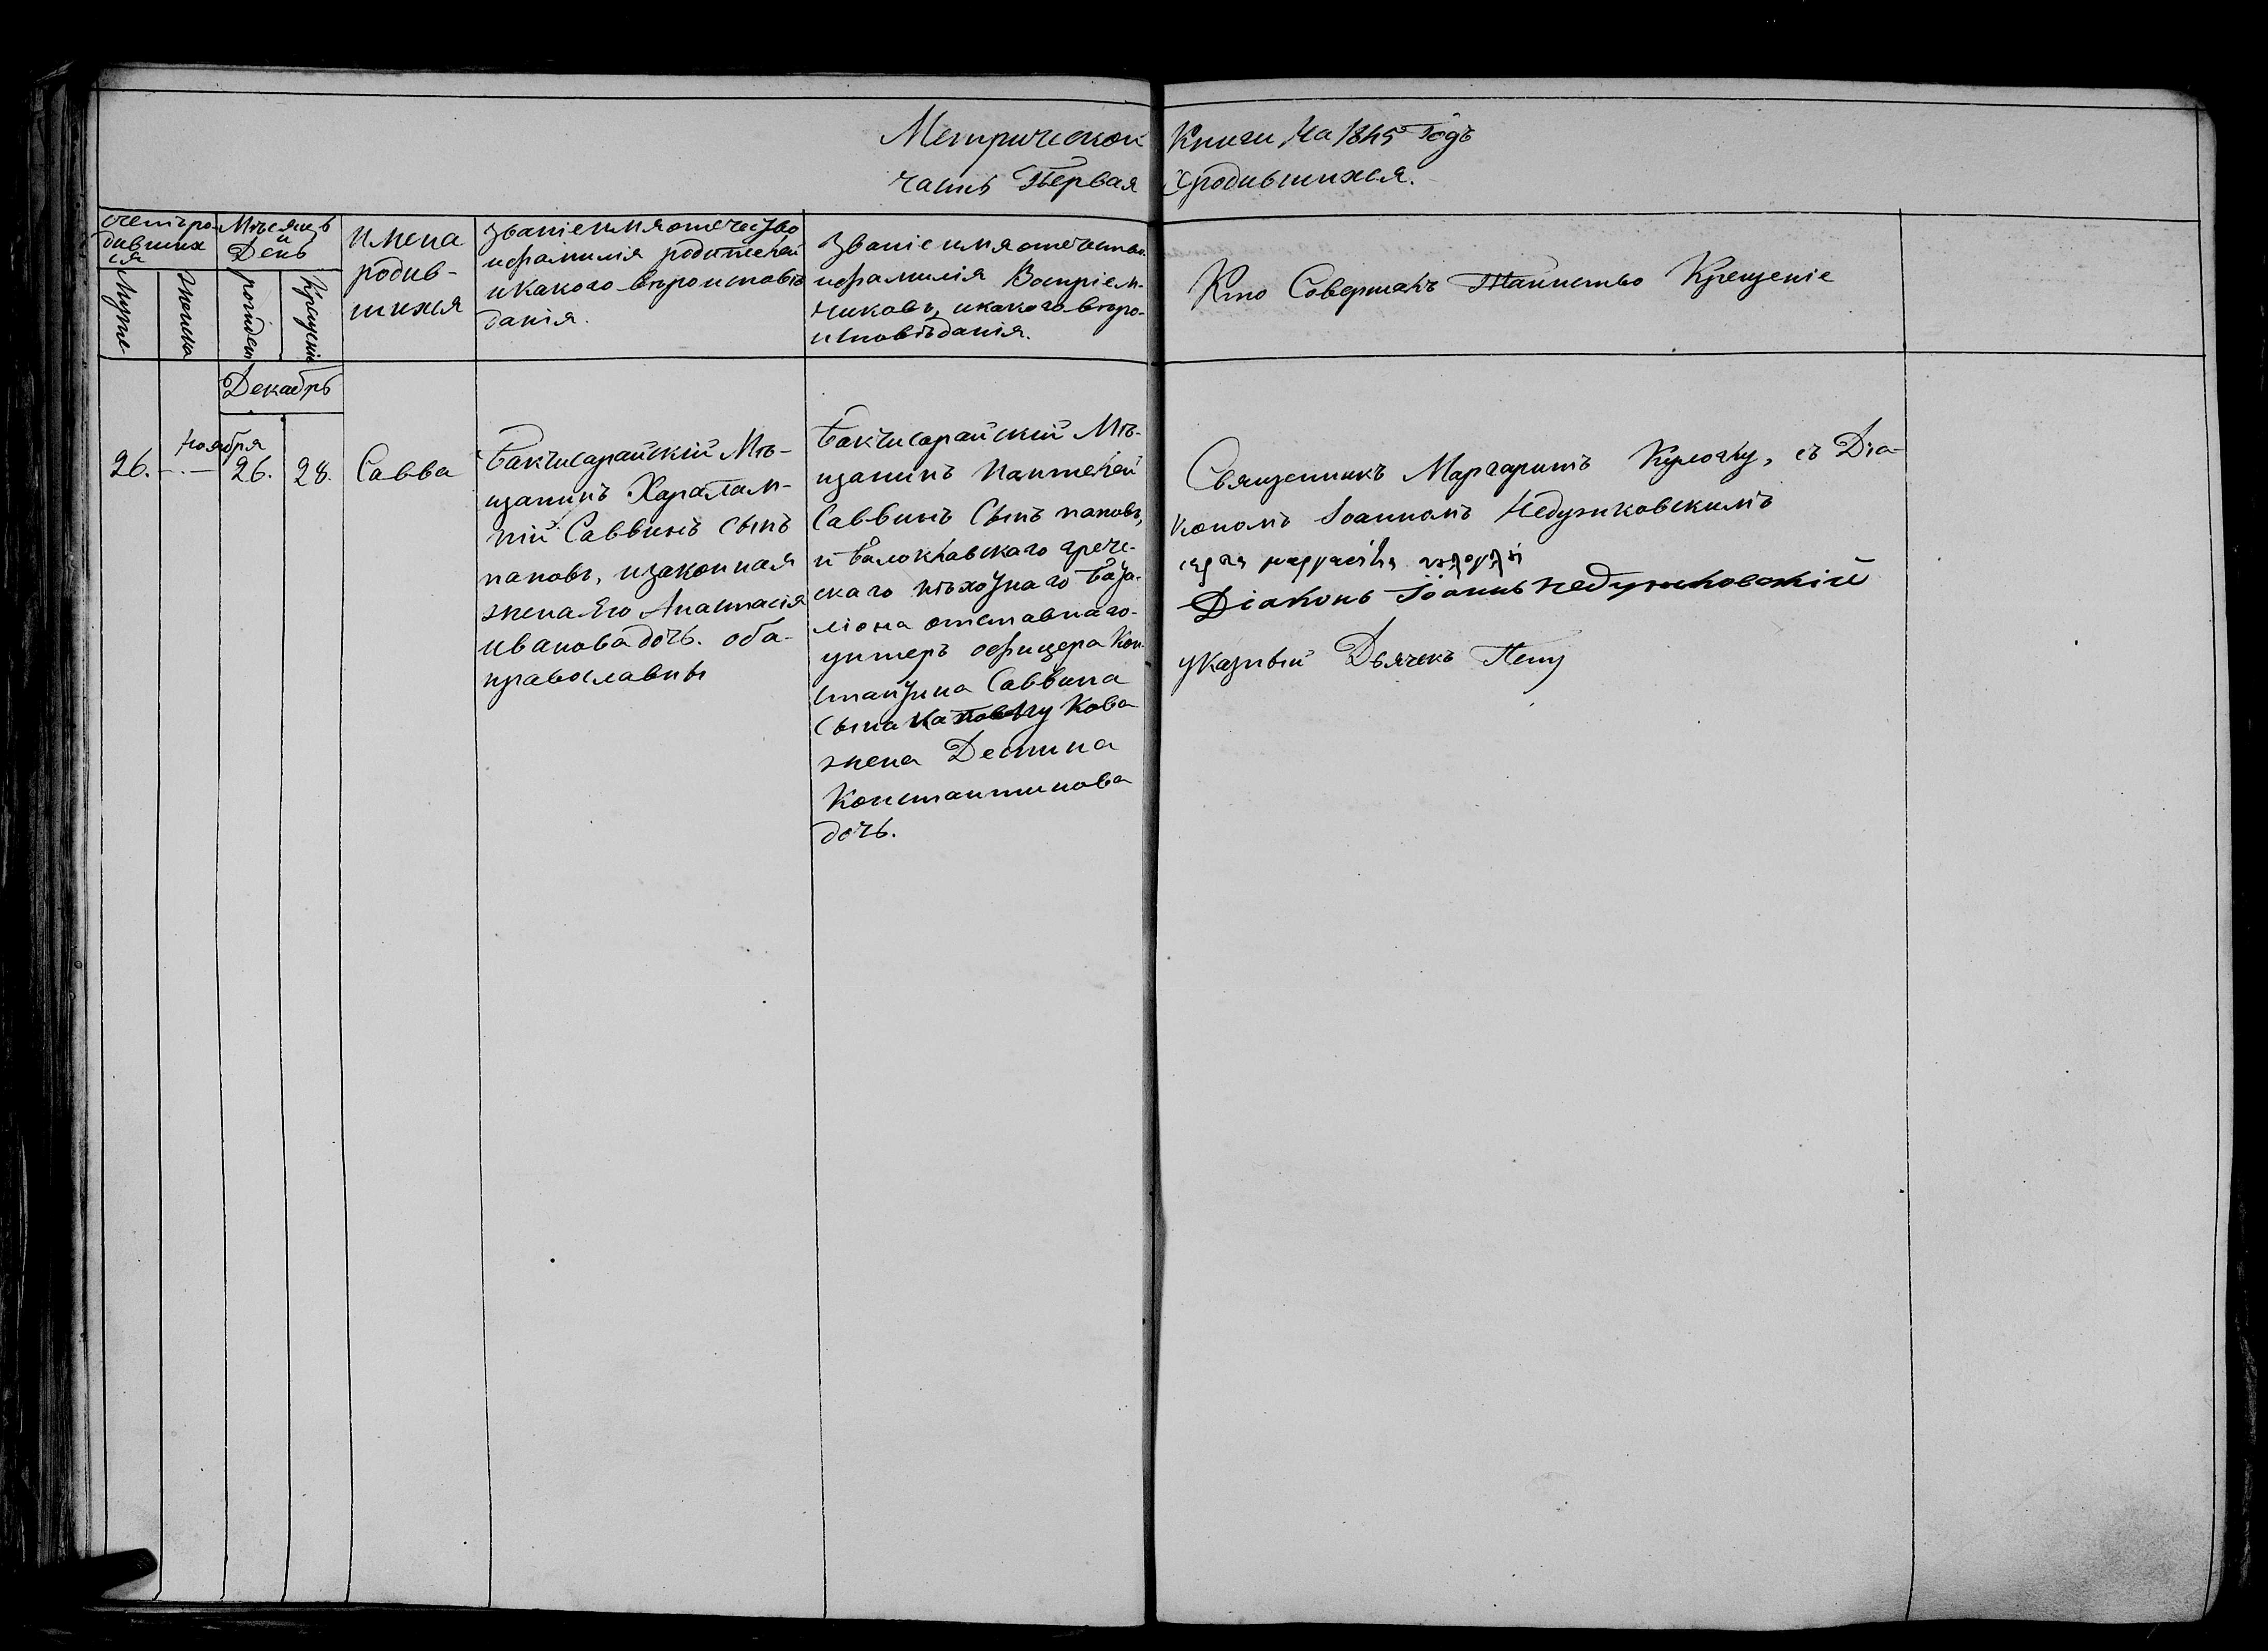 Метрической Книги На 1845 Годъ
часть Первая О родившихся.
счетъ ро-
дивших
ся
Мужие
Женска
Мѣсяцъ
и
День
рождені
Крещеніе
имена
родив-
шихся
Званіе имя отечество
и фамилія родителей
и какого вѣроисповѣ
данія.
Званіе имя отечество
и фамилія Воспріем-
никовъ, и какого вѣро-
исповѣданія.
Кто Совершалъ Таинство Крещеніе
Декабрь
Ноября
26. -.- 26. 28. Савва
Бакчисарайскій Мѣ-
щанинъ Харалам-
пій Саввинъ сынъ
пановъ, и законная
жена Его Анастасія
иванова дочь. оба-
православны
Бакчисарайскій Мѣ-
щанинъ Пантелей
Саввинъ Сынъ пановъ,
и Балоклавского грече-
скаго пѣхотнаго Бата-
ліона отставнаго-
унтеръ офицера Кон-
стантина Саввина
Сына
жена Деспина
Константинова
дочь.
Священникъ Маргаритъ съ Діа-
кономъ Іоанномъ Недужковскимъ
Діаконъ Іоаннъ недужковскій
указный Дьячекъ